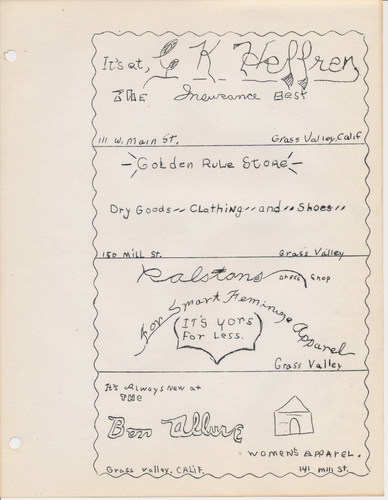 It's at, G K Heffren,
THE Insurance Best
111 W. Main St. Grass Valley, Calif
Golden Rule Store
Dry Goods,, Clothing,, and,, Shoes,,
150 Mill St. Grass Valley
Ralstons Dress Shop
For Smart Feminine Apparel
IT'S YORS
For Less.
Grass Valley
It's Always New at
THE
Bon Allure
WOMENS APPAREL.
Grass Valley, CALIF. 141 Mill St.